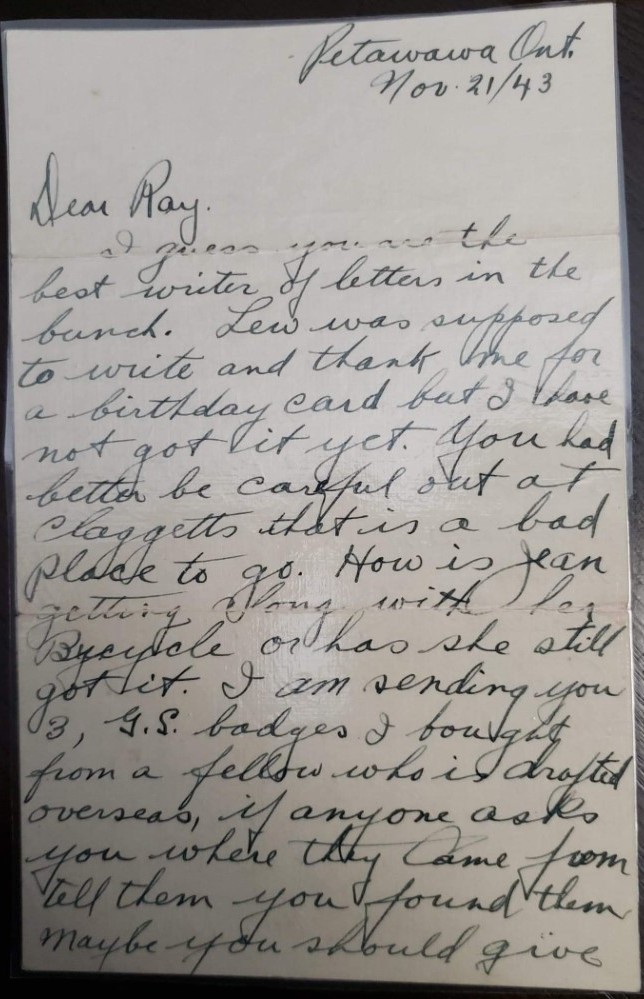 Petawawa Ont.
Nov. 21/43
Dear Ray.
I guess you are the
best writer of letters in the
bunch. Lew was supposed
to write and thank me for
a birthday card but I have
not got it yet. You had
better be careful out at
Claggetts that is a bad
place to go. How is Jean
getting along with her
Bycycle or has she still
got it. I am sending you
3, G.S. badges I bought
from a fellow who is drafted
overseas, if anyone asks
you where they came from
tell them you found them
maybe you should give